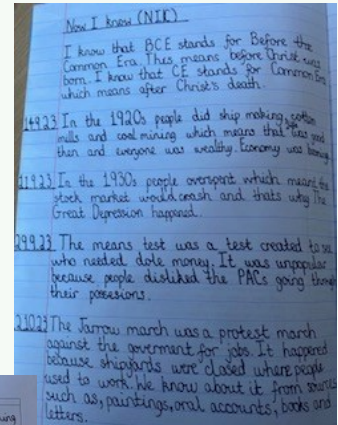 Now I know (NIK)
I know that BCE stands for Before the
Common Era. This means before Christ was
born. I know that CE stands for Common Era
which means after Christ's death.
14.9.23 In the 1920s people did ship making, cotton
mills and coal mining which means that was good
then and everyone was wealthy. Economy was booming.
21.9.23 In the 1930s people overspent which meant the
stock market would crash and thats why The
Great Depression happened.
29.9.23 The means test was a test created to see
who needed dole money. It was unpopular
because people disliked the PACs going through
their possesions.
2.10.23 The Jarrow march was a protest march
against the goverment for jobs. It happened
because shipyards were closed where people
used to work. We know about it from sources
such as, paintings, oral accounts, books and
letters.